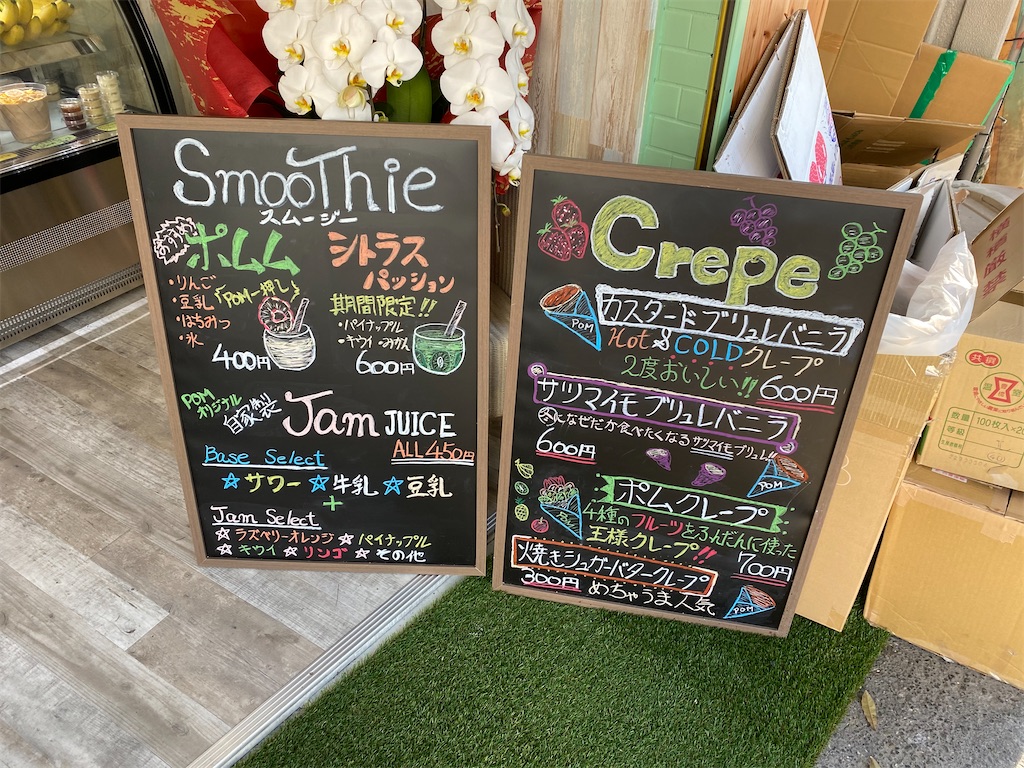 SmooThie
スムージー
おすすめ
ポムム
・りんご
・豆乳
・はちみつ
・氷
「POM一押し」
400円
シトラス
パッション
期間限定!!
・パイナップル
・キウイ・みかん
600円
POM
オリジナル
自家製
Jam JUICE
ALL 450円
Base Select
☆サワー ☆牛乳 ☆豆乳
+
Jam Select
☆ラズベリーオレンジ ☆パイナップル
☆キウイ ☆リンゴ ☆その他
Crepe
POM
カスタードブリュレバニラ
Hot & COLD クレープ
2度おいしい!! 600円
サツマイモブリュレバニラ
冬になぜだか食べたくなるサツマイモブリュレ!!
600円
POM
ポムクレープ
4種のフルーツをふんだんに使った
王様クレープ!!
700円
POM
焼きシュガーバタークレープ
300円 めっちゃうま人気
POM
共貨
数量 100枚入×20
等級